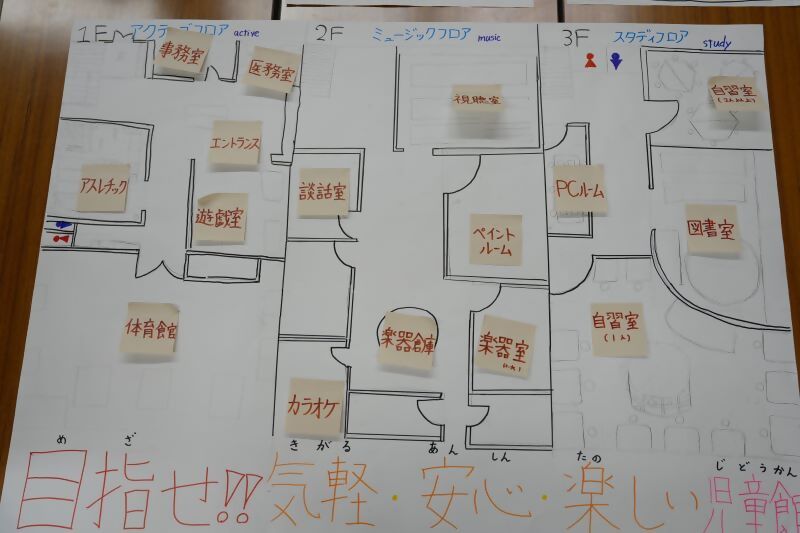 1F アクティブフロア active
事務室
医務室
エントランス
アスレチック
遊戯室
体育館
2F ミュージックフロア music
視聴室
談話室
ペイント
ルーム
楽器倉庫
楽器室
カラオケ
3F スタディフロア study
自習室
PCルーム
図書室
自習室
(1人)
めざ きがる あんしん たの じどうかん
目指せ!! 気軽・安心・楽しい児童館